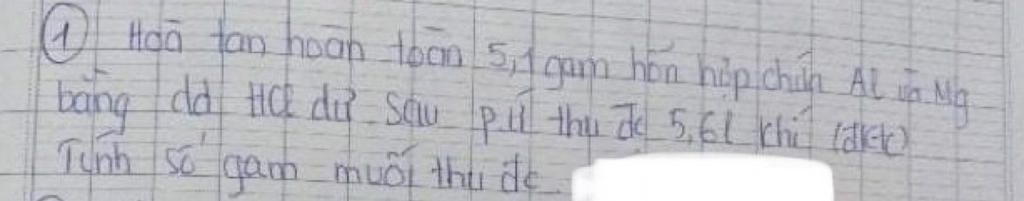 ① Hoà tan hoàn toàn 5,1 gam hỗn hợp chứa Al và Mg
bằng dd HCl dư sau pứ thu đc 5,6l khí (đktc)
Tính số gam muối thu đc.